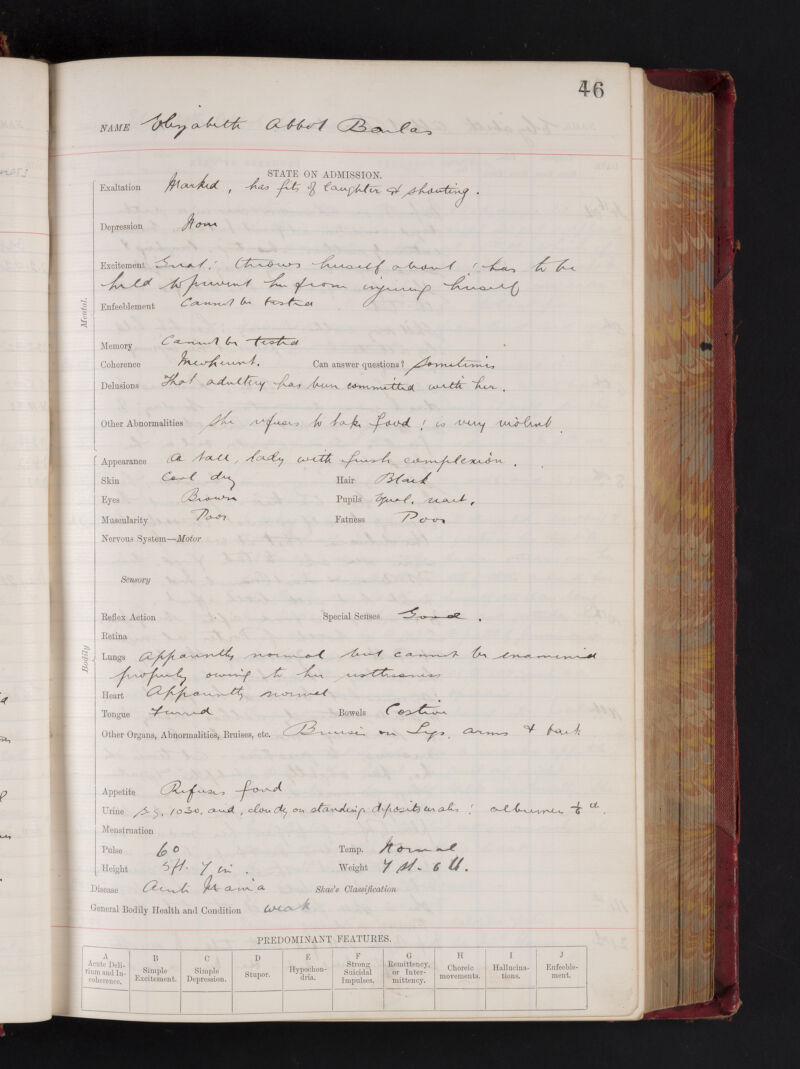 46
NAME Elizabeth Abbot Barlas
STATE ON ADMISSION.
Mental.
Exaltation Marked, has fits of laughter & shouting.
Depression None
Excitement Great: throws herself about; has to be
held to prevent her from injuring herself
Enfeeblement Cannot be tested
Memory Cannot be tested
Coherence Incoherent. Can answer questions? Sometimes
Delusions That adultery has been committed with her.
Other Abnormalities She refuses to take food; is very violent.
Bodily
Appearance A tall, lady with fresh complexion.
Skin Cool dry Hair Black
Eyes Brown Pupils Equal. react.
Muscularity Poor Fatness Poor
Nervous System—Motor
Sensory
Reflex Action Special Senses Good.
Retina
Lungs Apparently normal but cannot be examined
properly owing to her restlessness
Heart Apparently normal
Tongue Furred Bowels Costive
Other Organs, Abnormalities, Bruises, etc. Bruises on Legs, arms & back
Appetite Refuses food
Urine S.G. 1030, acid, cloudy on standing deposits urates; albumen
Menstruation
Pulse 60 Temp. Normal
Height 5ft. 7 in. Weight 7 st. 6 lb.
Disease Acute Mania Skae's Classification
General Bodily Health and Condition Weak
PREDOMINANT FEATURES.
A Acute Delirium and Incoherence.
B Simple Excitement.
C Simple Depression.
D Stupor.
E Hypochondria.
F Strong Suicidal Impulses.
G Remittency, or Intermittency.
H Choreic movements.
I Hallucinations.
J Enfeeblement.